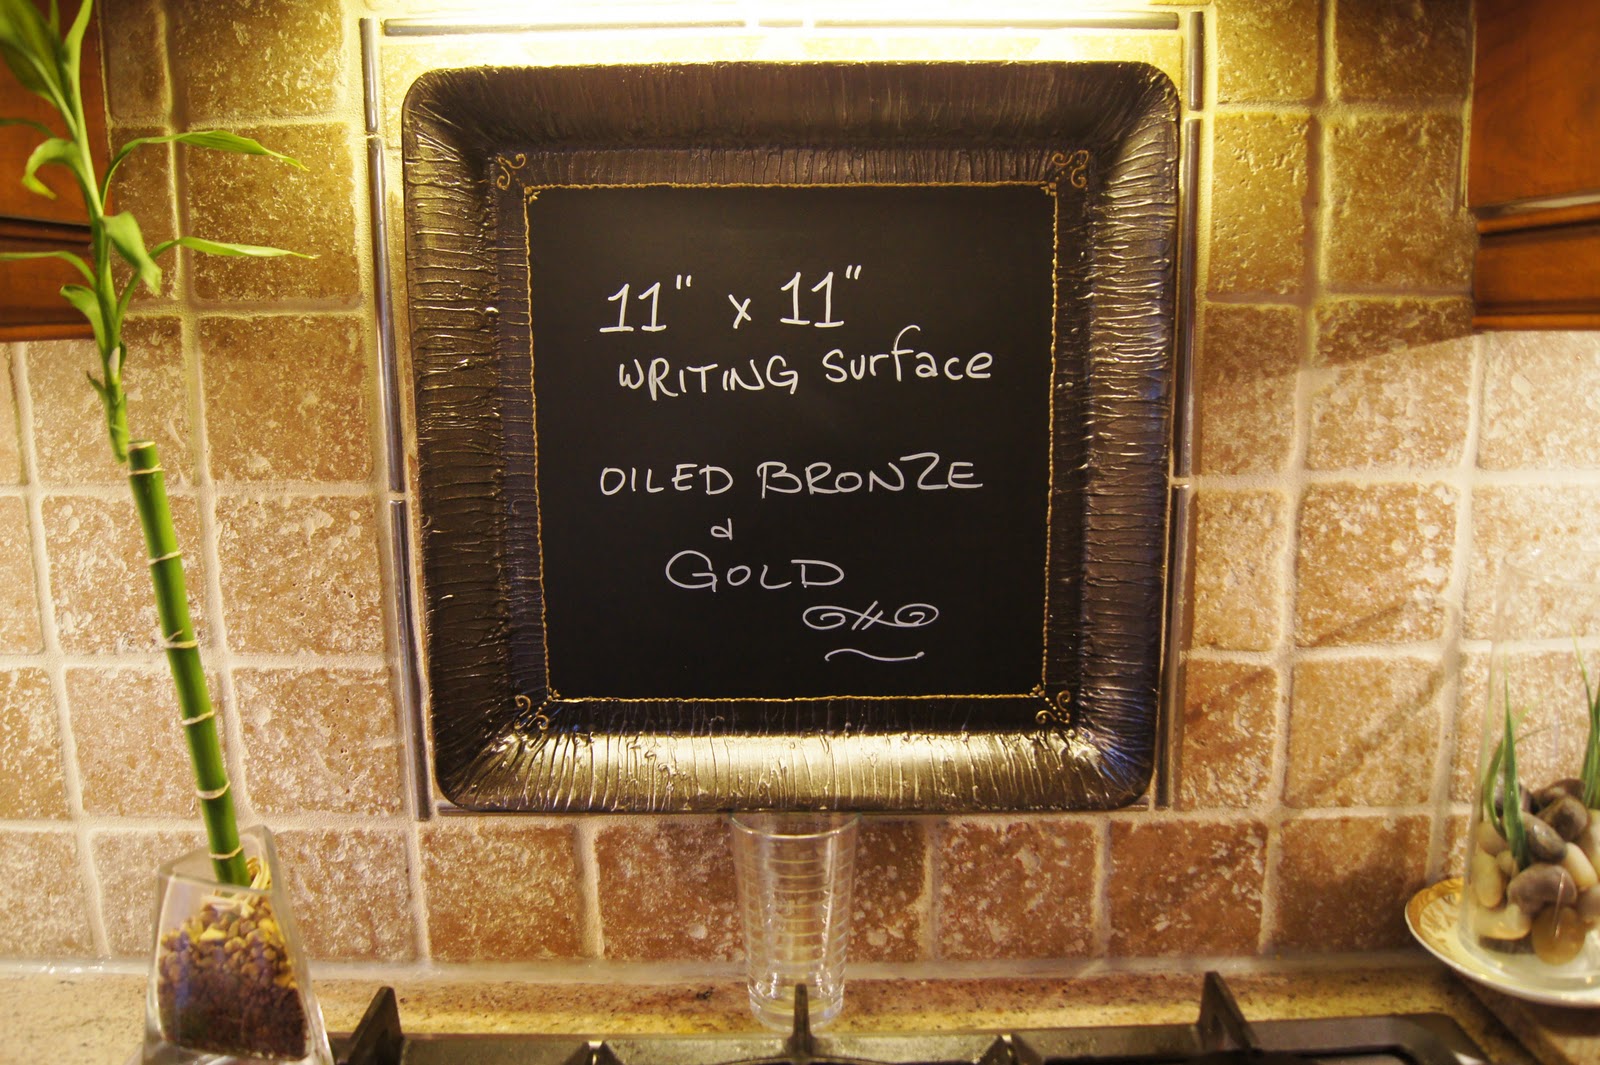 11" x 11"
WRITING Surface
OILED BRONZE
&
GOLD